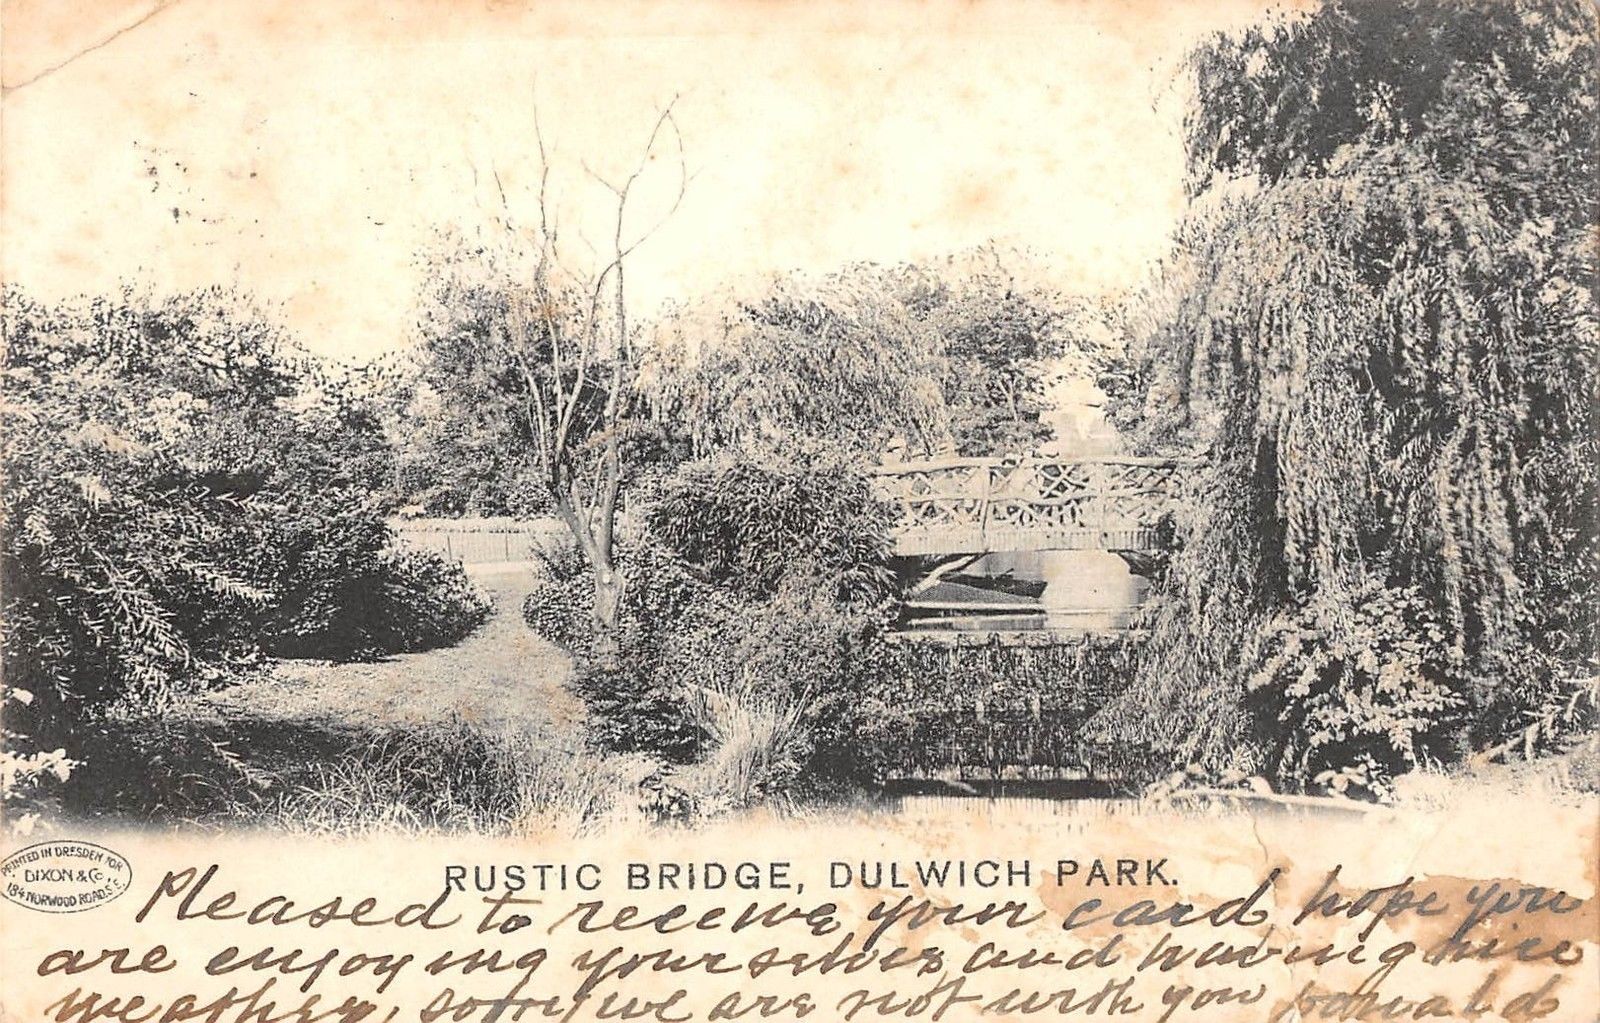 RUSTIC BRIDGE, DULWICH PARK.
PRINTED IN DRESDEN FOR
DIXON & Co.
184 NORWOOD ROAD, S.E.
Pleased to receive your card, hope you
are enjoying yourselves and having nice
weather, sorry we are not with you